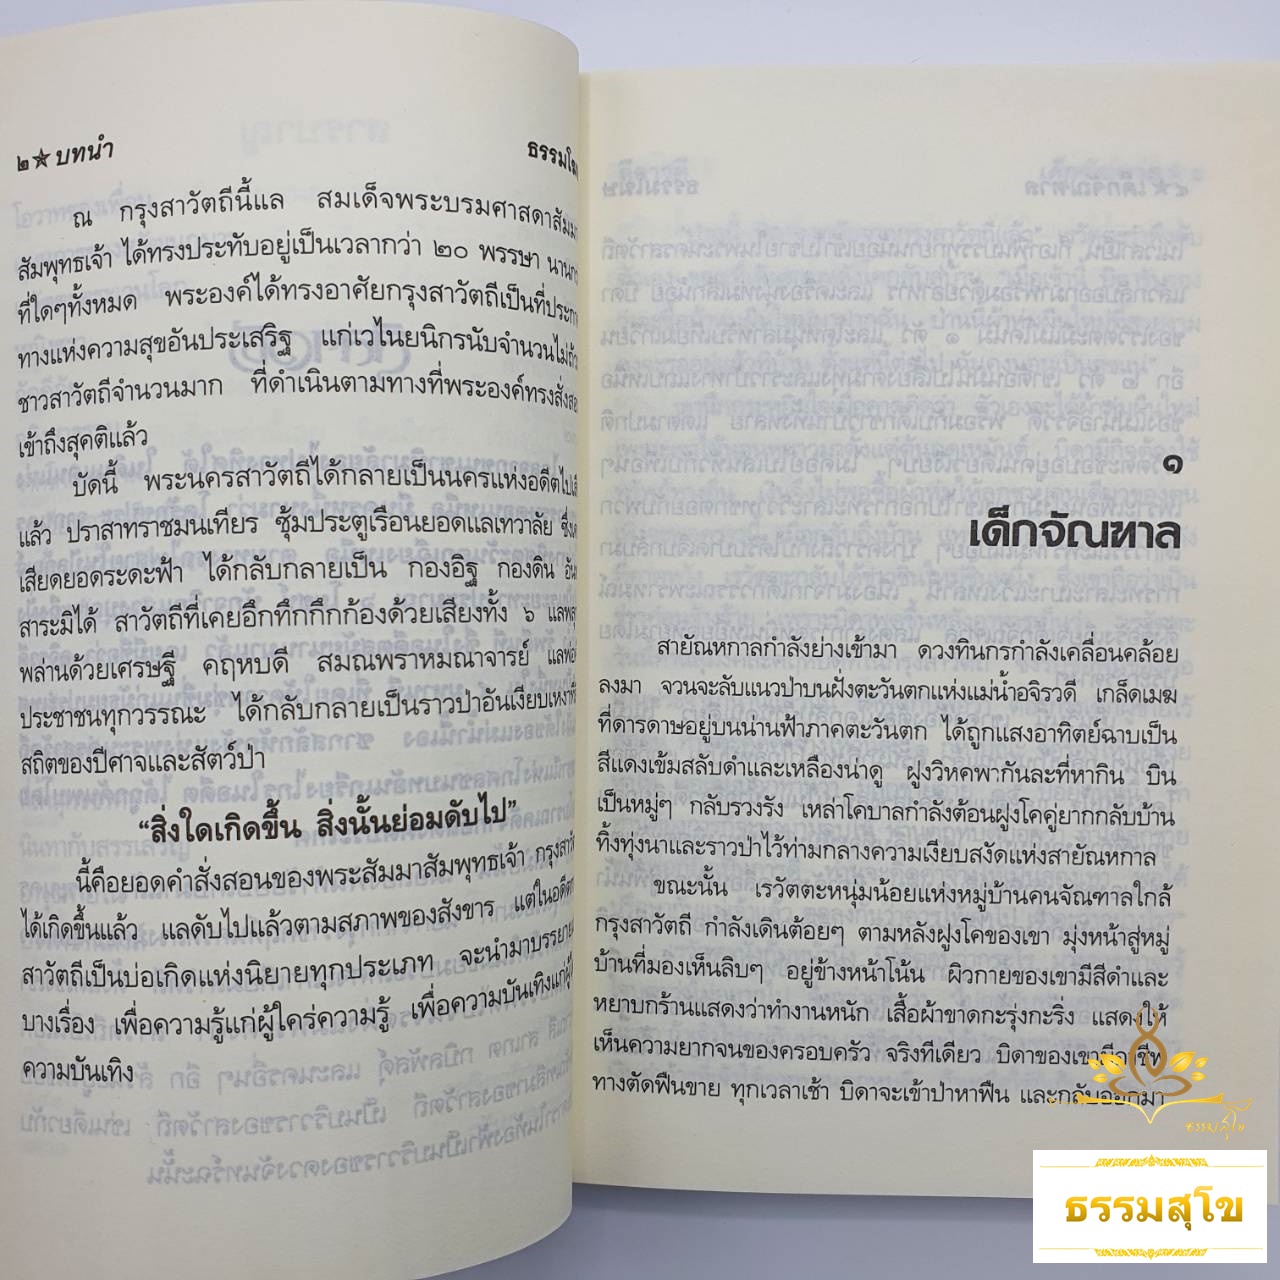 ๒ ★ บทนำ
ธรรมโฆ
ณ กรุงสาวัตถีนี้แล สมเด็จพระบรมศาสดาสัมมา
สัมพุทธเจ้า ได้ทรงประทับอยู่เป็นเวลากว่า ๒๐ พรรษา นานกว่า
ที่ใดๆทั้งหมด พระองค์ได้ทรงอาศัยกรุงสาวัตถีเป็นที่ประกาศ
ทางแห่งความสุขอันประเสริฐ แก่เวไนยนิกรนับจำนวนไม่ถ้วน
ชาวสาวัตถีจำนวนมาก ที่ดำเนินตามทางที่พระองค์ทรงสั่งสอน
เข้าถึงสุคติแล้ว
บัดนี้ พระนครสาวัตถีได้กลายเป็นนครแห่งอดีตไปเสีย
แล้ว ปราสาทราชมนเทียร ซุ้มประตูเรือนยอดแลเทวาลัย ซึ่งเค
เสียดยอดระดะฟ้า ได้กลับกลายเป็น กองอิฐ กองดิน อัน
สาระมิได้ สาวัตถีที่เคยอึกทึกกึกก้องด้วยเสียงทั้ง ๖ แลพลุก
พล่านด้วยเศรษฐี คฤหบดี สมณพราหมณาจารย์ แลพ่อ
ประชาชนทุกวรรณะ ได้กลับกลายเป็นราวป่าอันเงียบเหงา
สถิตของปีศาจและสัตว์ป่า
“สิ่งใดเกิดขึ้น สิ่งนั้นย่อมดับไป”
นี้คือยอดคำสั่งสอนของพระสัมมาสัมพุทธเจ้า กรุงสาวัต
ได้เกิดขึ้นแล้ว แลดับไปแล้วตามสภาพของสังขาร แต่ในอดีต
สาวัตถีเป็นบ่อเกิดแห่งนิยายทุกประเภท จะนำมาบรรยาย
บางเรื่อง เพื่อความรู้แก่ผู้ใคร่ความรู้ เพื่อความบันเทิงแก่ผู้
ความบันเทิง
๑
เด็กจัณฑาล
สายัณหกาลกำลังย่างเข้ามา ดวงทินกรกำลังเคลื่อนคล้อย
ลงมา จวนจะลับแนวป่าบนฝั่งตะวันตกแห่งแม่น้ำอจิรวดี เกล็ดเมฆ
ที่ดารดาษอยู่บนน่านฟ้าภาคตะวันตก ได้ถูกแสงอาทิตย์ฉาบเป็น
สีแดงเข้มสลับดำและเหลืองน่าดู ฝูงวิหคพากันละที่หากิน บิน
เป็นหมู่ๆ กลับรวงรัง เหล่าโคบาลกำลังต้อนฝูงโคคู่ยากกลับบ้าน
ทิ้งทุ่งนาและราวป่าไว้ท่ามกลางความเงียบสงัดแห่งสายัณหกาล
ขณะนั้น เรวัตตะหนุ่มน้อยแห่งหมู่บ้านคนจัณฑาลใกล้
กรุงสาวัตถี กำลังเดินต้อยๆ ตามหลังฝูงโคของเขา มุ่งหน้าสู่หมู่
บ้านที่มองเห็นลิบๆ อยู่ข้างหน้าโน้น ผิวกายของเขามีสีดำและ
หยาบกร้านแสดงว่าทำงานหนัก เสื้อผ้าขาดกะรุ่งกะริ่ง แสดงให้
เห็นความยากจนของครอบครัว จริงทีเดียว บิดาของเขามีอาชีพ
ทางตัดฟืนขาย ทุกเวลาเช้า บิดาจะเข้าป่าหาฟืน และกลับออกมา
ธรรมสุโข
ธรรมสุโข